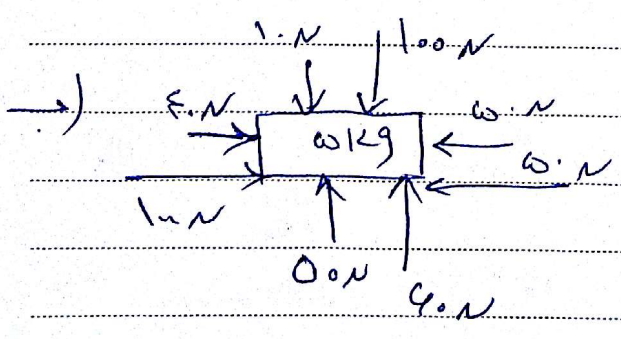 ۱۰N ۱۰۰N
۴۰N ۵kg ۵۰N
۵۰N
۱۰۰N
۵۰N
۶۰N